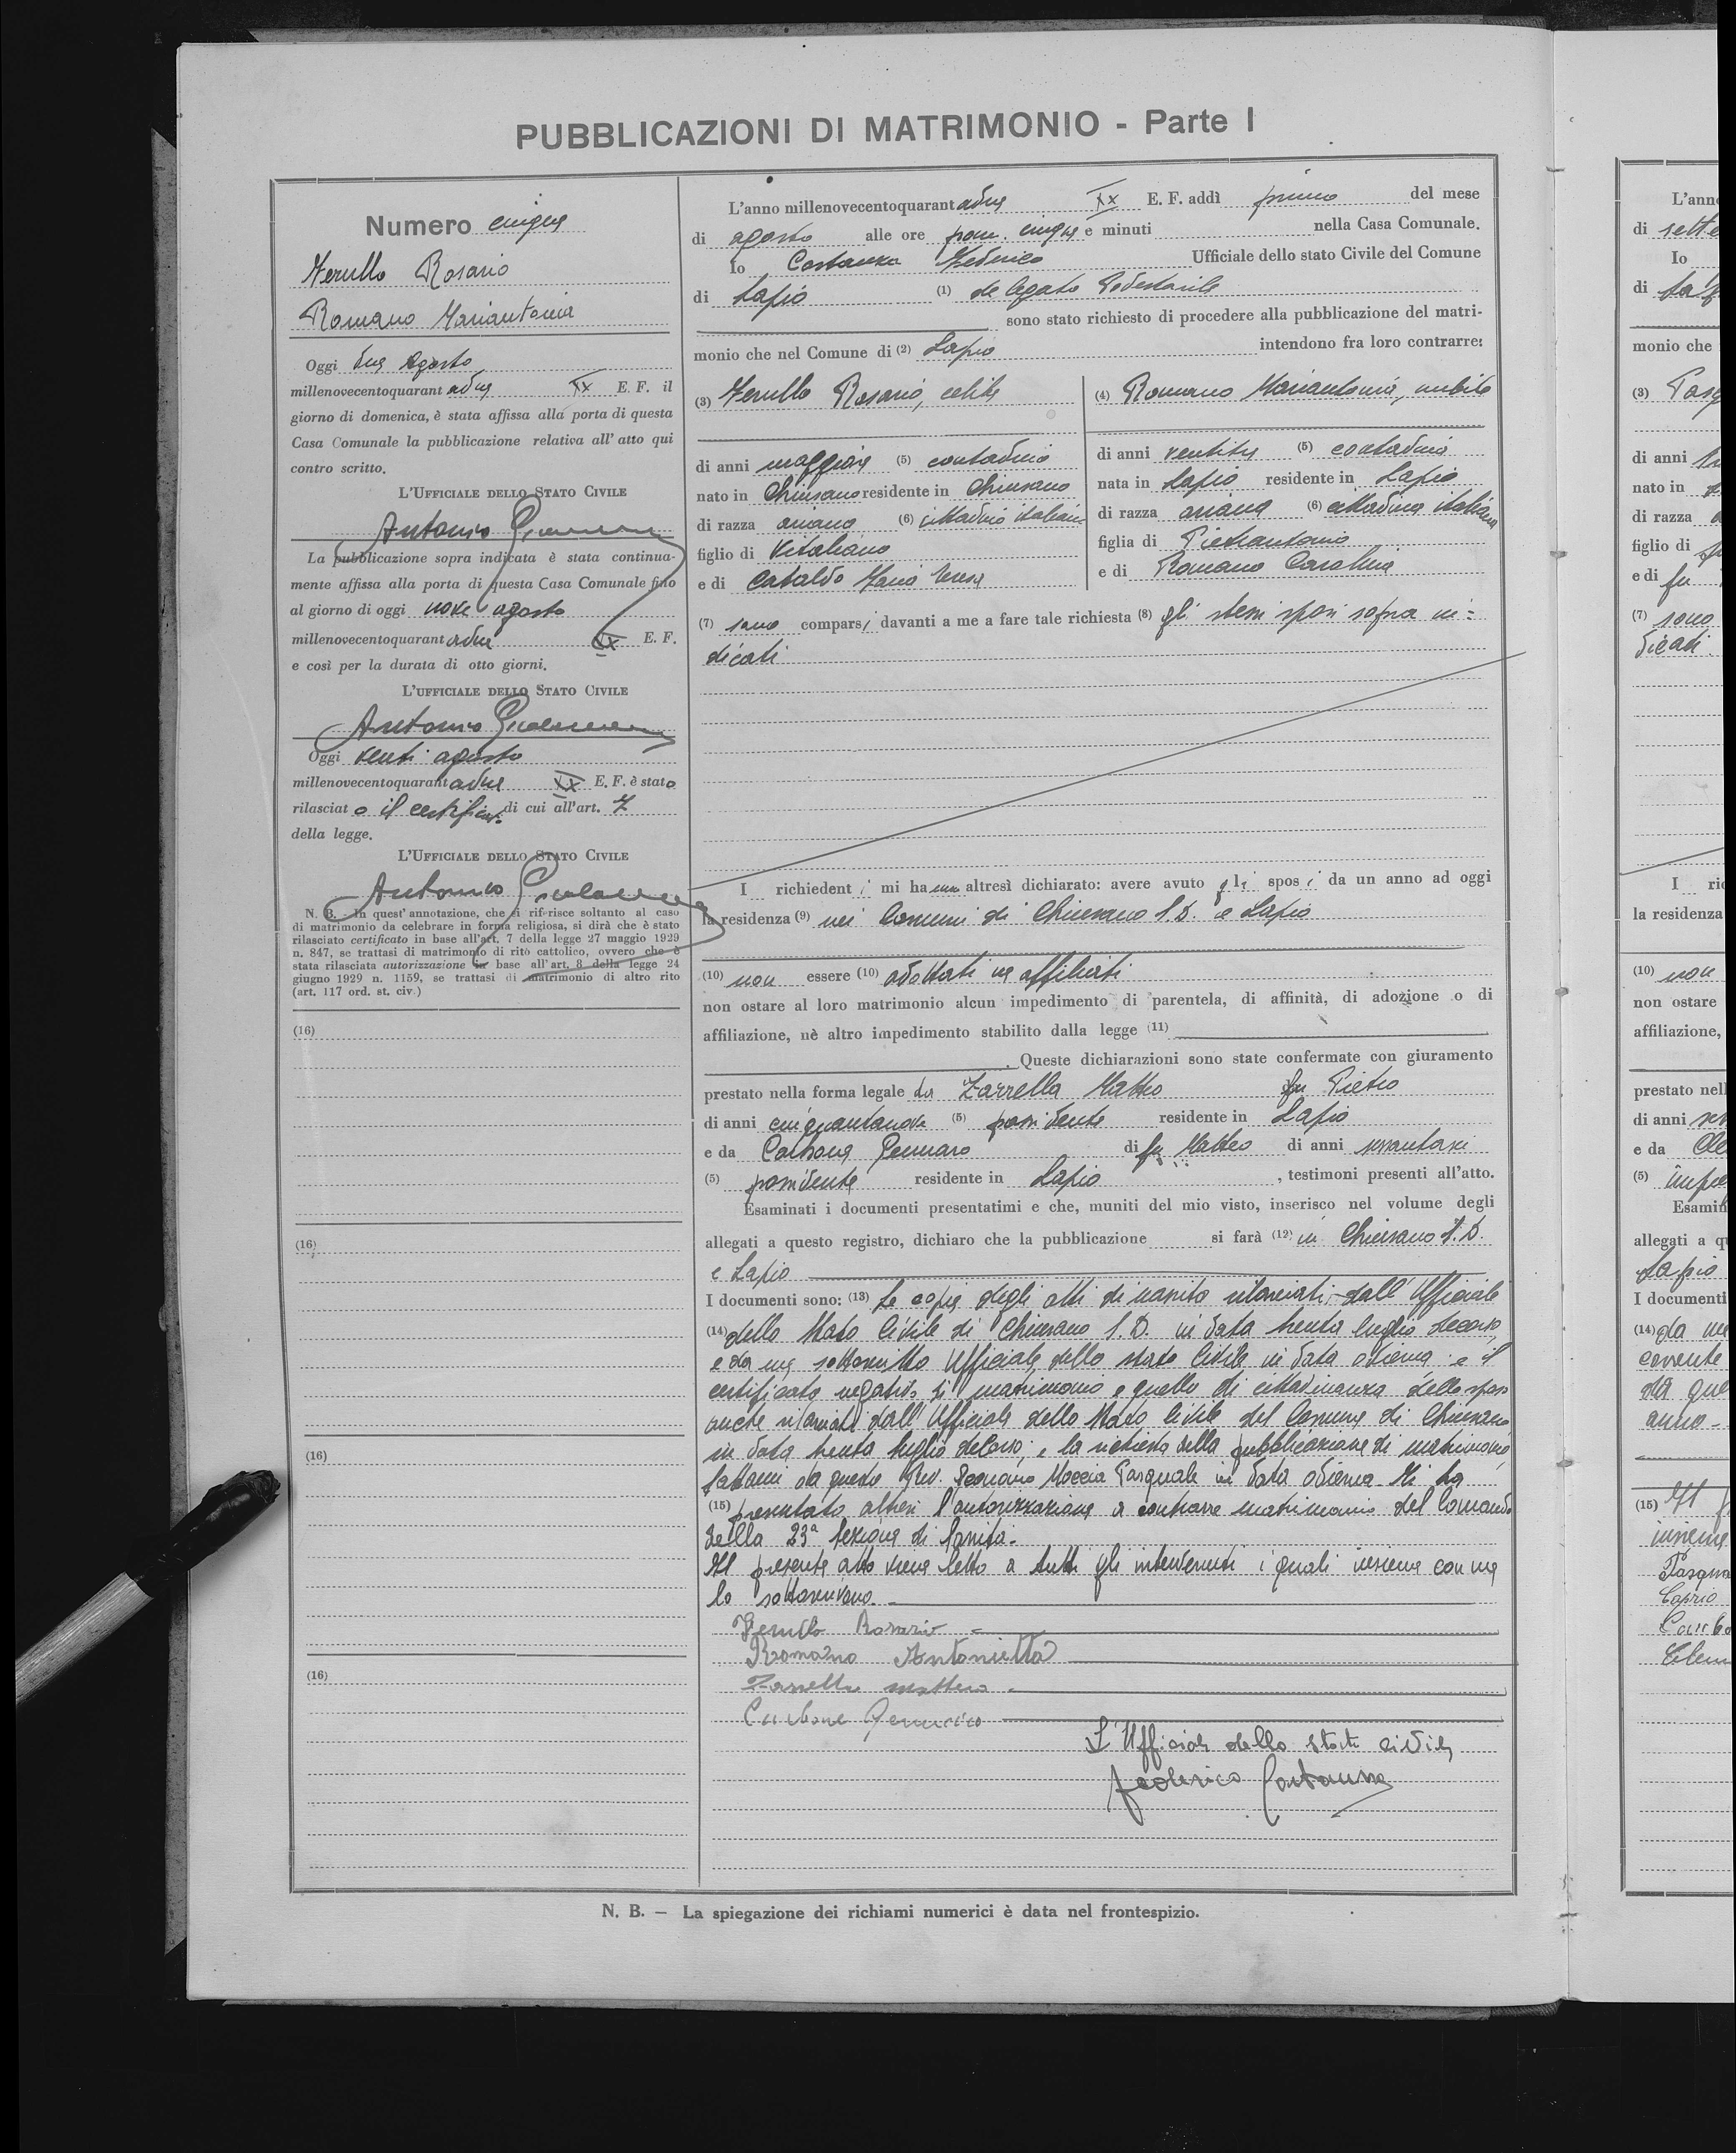 PUBBLICAZIONI DI MATRIMONIO - Parte I
Numero cinque
Rosario
Romano Mariantonia
Oggi due agosto
millenovecentoquarantadue XX E. F. il
giorno di domenica, è stata affissa alla porta di questa
Casa Comunale la pubblicazione relativa all' atto qui
contro scritto.
L'UFFICIALE DELLO STATO CIVILE
Antonio
La pubblicazione sopra indicata è stata continua-
mente affissa alla porta di questa Casa Comunale fino
al giorno di oggi nove agosto
millenovecentoquarantadue XX E. F.
e così per la durata di otto giorni.
L'UFFICIALE DELLO STATO CIVILE
Antonio
Oggi venti agosto
millenovecentoquarantadue XX E. F. è stato
rilasciato il certificato di cui all'art. 7
della legge.
L'UFFICIALE DELLO STATO CIVILE
Antonio
N. B. - In quest' annotazione, che si riferisce soltanto al caso
di matrimonio da celebrare in forma religiosa, si dirà che è stato
rilasciato certificato in base all'art. 7 della legge 27 maggio 1929
n. 847, se trattasi di matrimonio di rito cattolico, ovvero che è
stata rilasciata autorizzazione in base all' art. 8 della legge 24
giugno 1929 n. 1159, se trattasi di matrimonio di altro rito
(art. 117 ord. st. civ.)
(16)
(16)
(16)
(16)
L'anno millenovecentoquarantadue XX E. F. addì primo del mese
di agosto alle ore pom. cinque e minuti nella Casa Comunale.
Io Costanza Federico Ufficiale dello stato Civile del Comune
di Lapio (1) delegato Podestarile
sono stato richiesto di procedere alla pubblicazione del matri-
monio che nel Comune di (2) Lapio intendono fra loro contrarre:
(3) Rosario, celibe
di anni maggiore (5) contadino
nato in Chiusano residente in Chiusano
di razza ariana (6) cittadino italiano
figlio di Vitaliano
e di Cataldo Maria Teresa
(4) Romano Mariantonia, nubile
di anni ventitre (5) contadina
nata in Lapio residente in Lapio
di razza ariana (6) cittadina italiana
figlia di Pietrantonio
e di Romano Carolina
(7) sono comparsi davanti a me a fare tale richiesta (8) gli stessi sposi sopra in=
dicati
I richiedenti mi hanno altresì dichiarato: avere avuto gli sposi da un anno ad oggi
la residenza (9) nei Comuni di Chiusano S. D. e Lapio
(10) non essere (10) adottati ne affiliati
non ostare al loro matrimonio alcun impedimento di parentela, di affinità, di adozione o di
affiliazione, nè altro impedimento stabilito dalla legge (11)
Queste dichiarazioni sono state confermate con giuramento
prestato nella forma legale da Zarrella Matteo fu Pietro
di anni cinquantanove (5) possidente residente in Lapio
e da Carbone Gennaro di fu Matteo di anni sessantasei
(5) possidente residente in Lapio , testimoni presenti all'atto.
Esaminati i documenti presentatimi e che, muniti del mio visto, inserisco nel volume degli
allegati a questo registro, dichiaro che la pubblicazione si farà (12) in Chiusano S. D.
e Lapio
I documenti sono: (13) Le copie degli atti di nascita rilasciati dall' Ufficiale
(14) dello Stato Civile di Chiusano S. D. in data trenta luglio decorso,
e da me sottoscritto Ufficiale dello stato Civile in data odierna; e il
certificato negativo di matrimonio e quello di cittadinanza dello sposo
anche rilasciati dall' Ufficiale dello Stato Civile del Comune di Chiusano
in data trenta luglio decorso; e la richiesta della pubblicazione di matrimonio
fattami da questo Rev. Moccia Pasquale in data odierna. Mi ha
(15) presentato altresì l'autorizzazione a contrarre matrimonio del Comando
della 23ª Sezione di Sanità.
Il presente atto viene letto a tutti gli intervenuti i quali insieme con me
lo sottoscrivono.
Rosario
Romano Antonietta
Zarrella Matteo
Carbone Gennaro
L'Ufficiale dello stato civile
Federico Costanza
N. B. — La spiegazione dei richiami numerici è data nel frontespizio.
L'ann
di sette
Io
di
monio che
(3)
di anni
nato in
di razza
figlio di
e di fu
(7) sono
dicati.
I ric
la residenza
(10) non
non ostare
affiliazione,
prestato nel
di anni
e da
(5)
Esamin
allegati a q
Lapio
I documenti
(14) da me
corrente
anno
(15) Il
insieme
Pasqua
Caprio